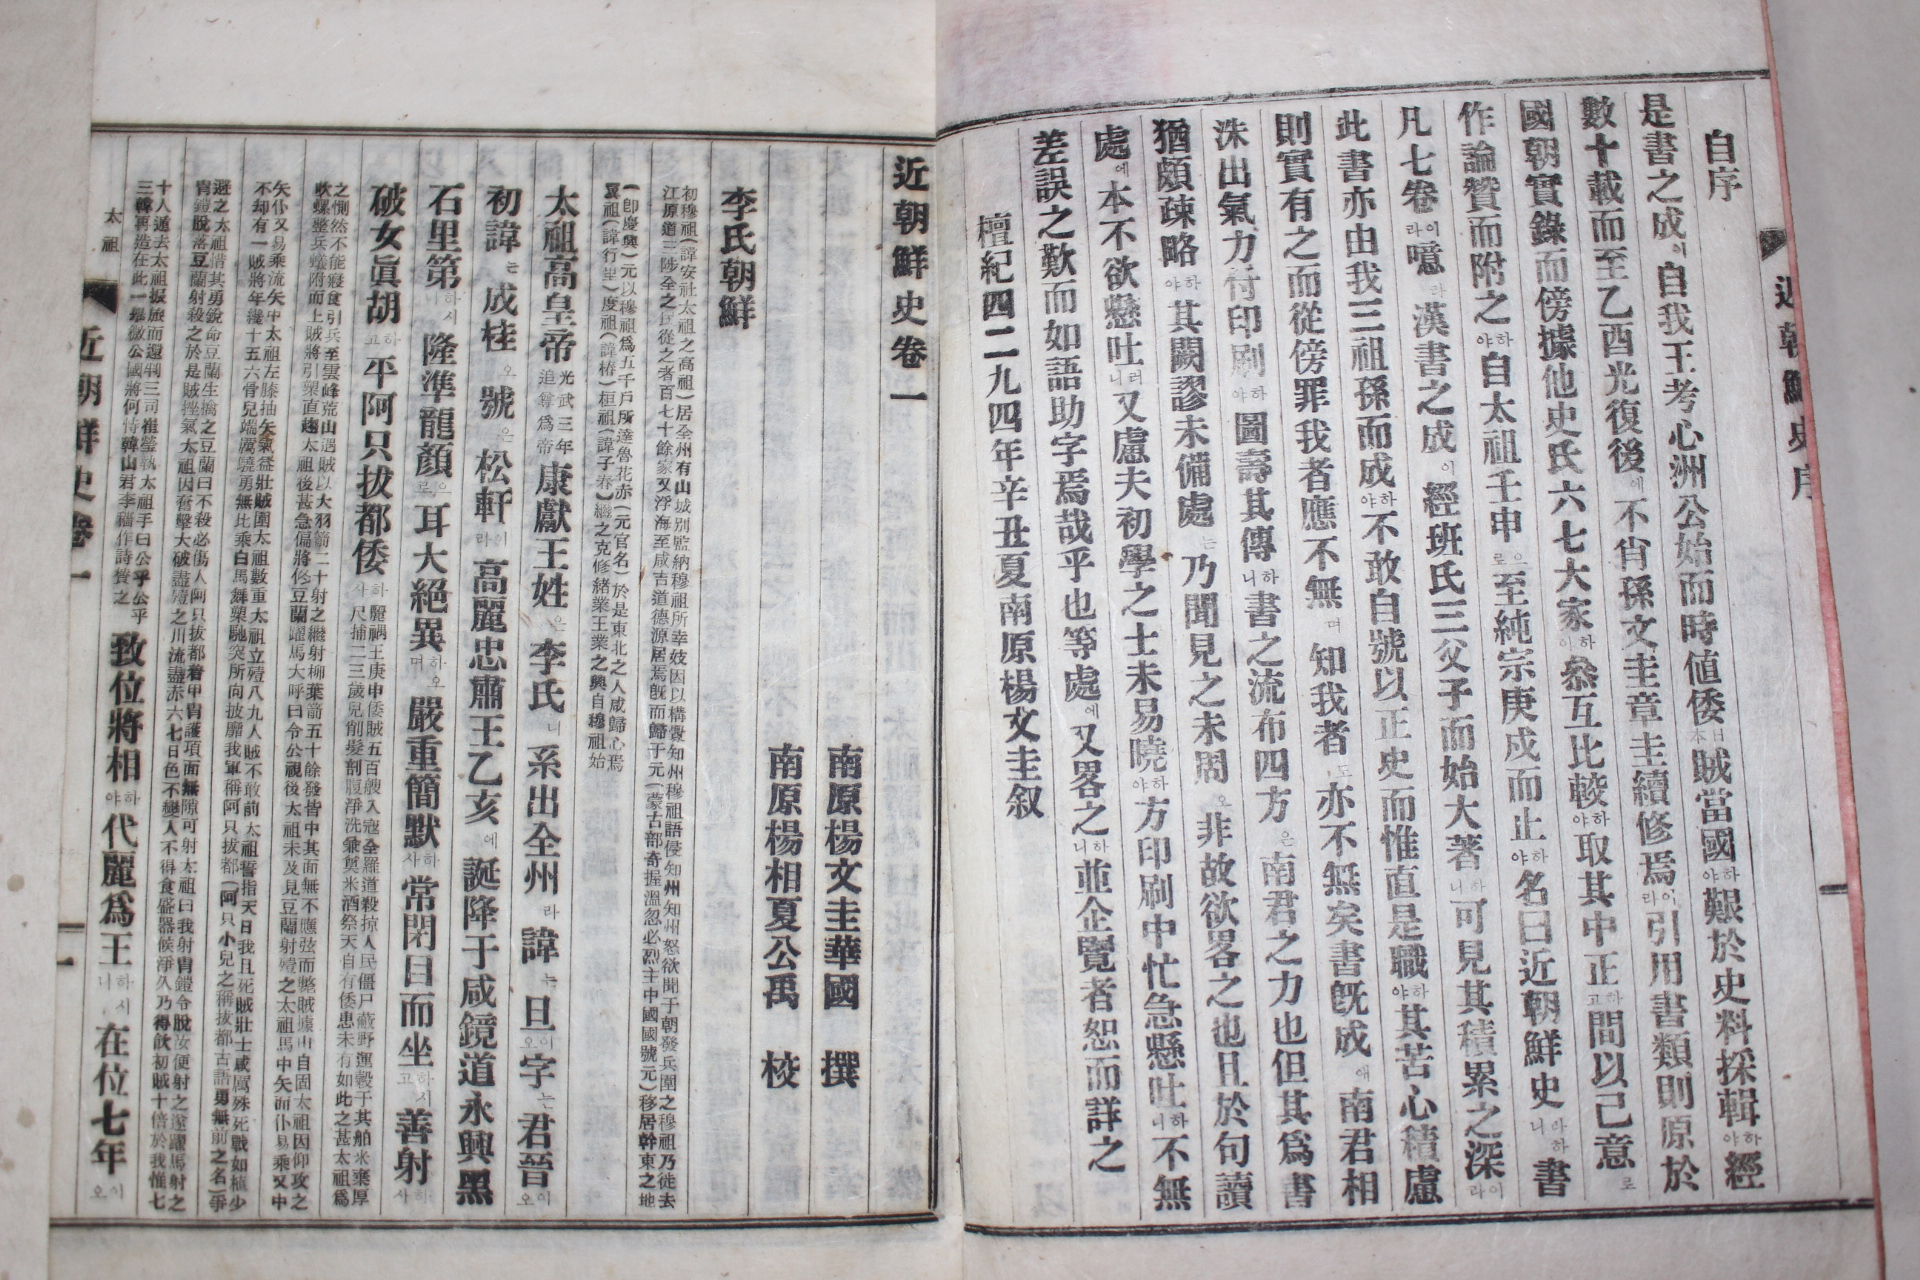 近朝鮮史序
自序
是書之成이自我王考心洲公始而時値倭日本賊當國하야艱於史料採輯하야經
數十載而至乙酉光復後에不肖孫文圭章圭續修焉이라引用書類則原於
國朝實錄而傍據他史氏六七大家하야叅互比較하야取其中正하고間以己意로
作論贊而附之하야自太祖壬申으로至純宗庚戌而止하야名曰近朝鮮史라하니書
凡七卷이라噫라漢書之成이經班氏三父子而始大著하니可見其積累之深이라
此書亦由我三祖孫而成하야不敢自號以正史而惟直是職하야其苦心積慮
則實有之而從傍罪我者應不無며知我者도亦不無矣書旣成애南君相
洙出氣力付印刷하야圖壽其傳하니書之流布四方은南君之力也但其爲書
猶頗疎略하야其闕謬未備處는乃聞見之未周오非故欲畧之也且於句讀
處에本不欲懸吐러니又慮夫初學之士未易曉하야方印刷中忙急懸吐하니不無
差誤之歎而如語助字焉哉乎也等處에又畧之하니並企覽者恕而詳之
檀紀四二九四年辛丑夏南原楊文圭叙
近朝鮮史卷一
南原楊文圭華國　撰
南原楊相夏公禹　校
李氏朝鮮
初穆祖(諱安社太祖之高祖)居全州有山城別監納穆祖所幸妓因以構釁知州穆祖語侵知州知州怒欲聞于朝發兵圍之穆祖乃徙去
江原道三陟全之民從之者百七十餘家又浮海至咸吉道德源居焉旣而歸于元(蒙古部奇握溫忽必烈主中國國號元)移居幹東之地
(卽慶興)元以穆祖爲五千戶所達魯花赤(元官名)於是東北之人咸歸心焉
翼祖(諱行里)度祖(諱椿)桓祖(諱子春)繼之克修緖業王業之興自穆祖始
太祖高皇帝光武三年追尊爲帝康獻王姓은李氏니系出全州라諱는旦이오字는君晉이오
初諱는成桂오號은松軒이라高麗忠肅王乙亥에誕降于咸鏡道永興黑
石里第하시니隆準龍顏으로耳大絕異하오며嚴重簡默하사常閉目而坐하시고善射하사
破女眞胡하고平阿只拔都倭하사麗禑王庚申倭賊五百艘入寇全羅道殺掠人民僵尸蔽野運穀于其舶米棄厚
尺捕二三歲兒削髮剖腹淨洗兼奠米酒祭天自有倭患未有如此之甚太祖爲
之惻然不能寢食引兵至雲峰荒山遇賊以大羽箭二十射之繼射柳葉箭五十餘發皆中其面無不應弦而斃賊據山自固太祖因仰攻之
吹螺整兵蟻附而上賊將引槊直趨太祖後甚急偏將佟豆蘭躍馬大呼曰令公視後太祖未及見豆蘭射殪之太祖馬中矢而仆易乘又中
矢仆又易乘流矢中太祖左膝抽矢氣益壯賊圍太祖數重太祖立殪八九人賊不敢前太祖誓指天日我且死賊壯士咸厲殊死戰如植少
不却有一賊將年纔十五六骨兒端厲驍勇無比乘白馬舞槊馳突所向披靡我軍稱阿只拔都(阿只小兒之稱拔都古語勇無前之名)爭
避之太祖惜其勇銳命豆蘭生擒之豆蘭曰不殺必傷人阿只拔都着甲冑護項面無隙可射太祖曰我射冑鎧令脫汝便射之遂躍馬射之
冑鎧脫落豆蘭射殺之於是賊挫氣太祖因奮擊大破盡殪之川流盡赤六七日色不變人不得食盛器候淨久乃得飮初賊十倍於我惟七
十人遁去太祖振旅而還判三司崔瑩執太祖手曰公乎公乎
三韓再造在此一擧微公國將何恃韓山君李穡作詩贊之致位將相하야代麗爲王하시니在位七年이오
太祖
近朝鮮史卷一
一